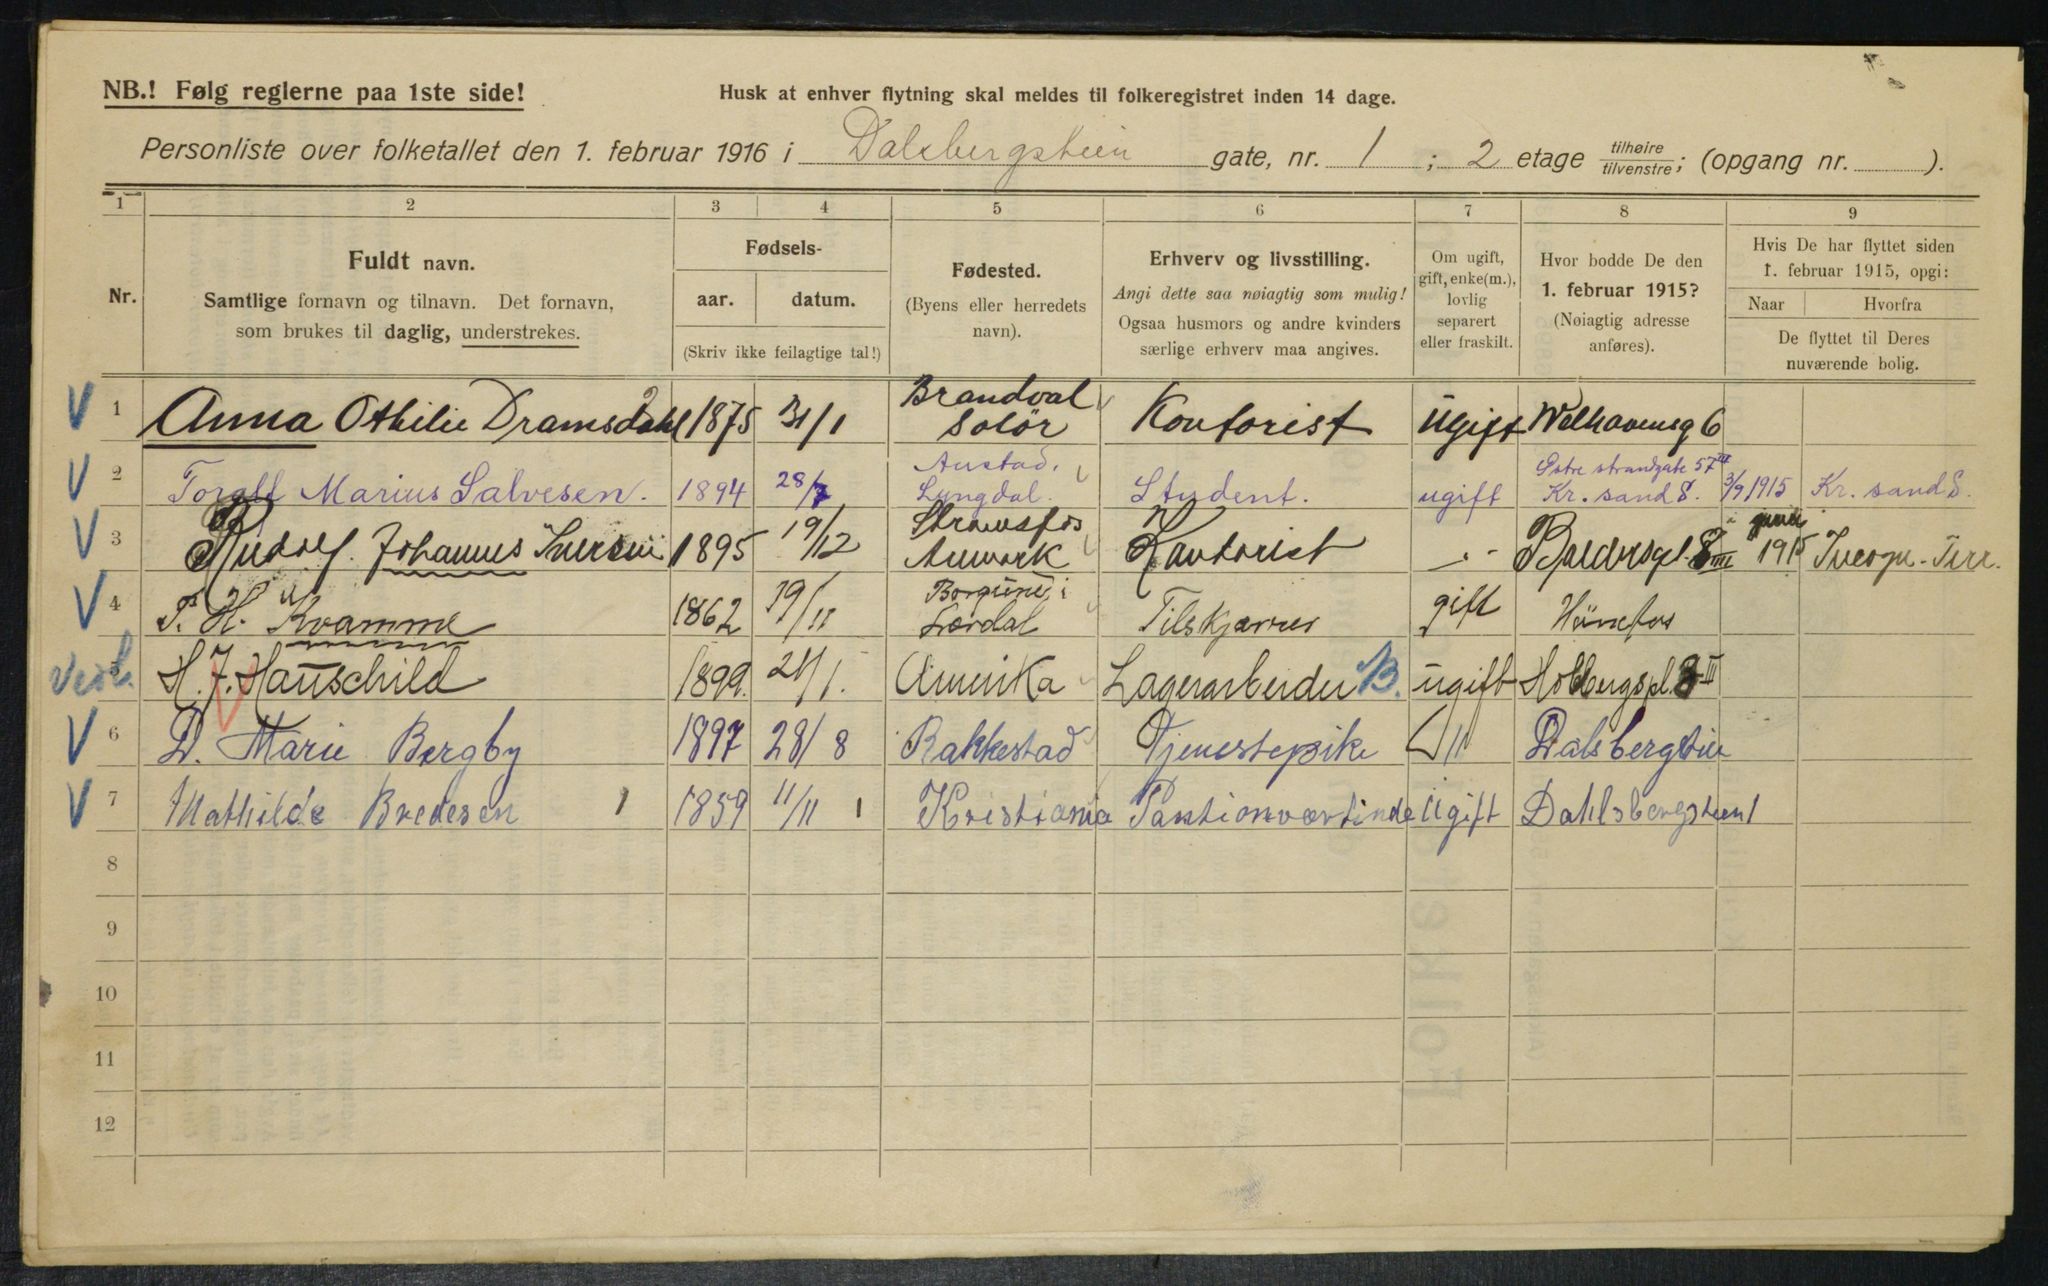 NB.! Følg reglerne paa 1ste side!
Husk at enhver flytning skal meldes til folkeregistret inden 14 dage.
Personliste over folketallet den 1. februar 1916 i Dalsbergstien gate, nr. 1 ; 2 etage tilhøire tilvenstre; (opgang nr. ).
1 2 3 4 5 6 7 8 9
Nr.
Fuldt navn.
Samtlige fornavn og tilnavn. Det fornavn,
som brukes til daglig, understrekes.
Fødsels-
aar. datum.
(Skriv ikke feilagtige tal!)
Fødested.
(Byens eller herredets
navn).
Erhverv og livsstilling.
Angi dette saa nøiagtig som mulig!
Ogsaa husmors og andre kvinders
særlige erhverv maa angives.
Om ugift,
gift, enke(m.),
lovlig
separert
eller fraskilt.
Hvor bodde De den
1. februar 1915?
(Nøiagtig adresse
anføres).
Hvis De har flyttet siden
1. februar 1915, opgi:
Naar Hvorfra
De flyttet til Deres
nuværende bolig.
1 Anna Othilie Dramsdahl 1875 31/1 Brandval Solör Kontorist ugift Welhavensg 6
2 Toralf Marius Salvesen. 1894 28/7 Austad, Lyngdal. Student. ugift Østre strandgate 57 III Kr. sand S. 3/9 1915 Kr. sand S.
3 Rudolf Johannes Iversen 1895 19/12 Strømsfos Aremark Kontorist 1915
4 P. H. Kvamme 1862 19/11 Borgund i Lærdal Tilskjærer gift Hönefos
5 H. J. Hauschild 1899. 21/1. Amerika Lagerarbeider B. ugift Holbergspl. 3 III
6 D. Marie Bergby 1897 28/8 Rakkestad Tjenestepike Dalsbergstien
7 Mathilde Bredesen 1 1859 11/11 1 Kristiania Panstionværtinde Ugift Dahlsbergstien 1
8
9
10
11
12